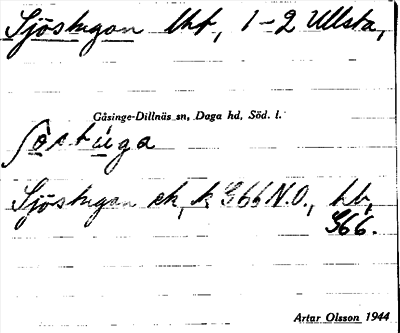 Sjöstugan lht, 1-2 Ullsta,
Gåsinge-Dillnäs sn, Daga hd, Söd. l.
Sjöstugan ek, k G66 N.O., hb,
G66.
Artur Olsson 1944